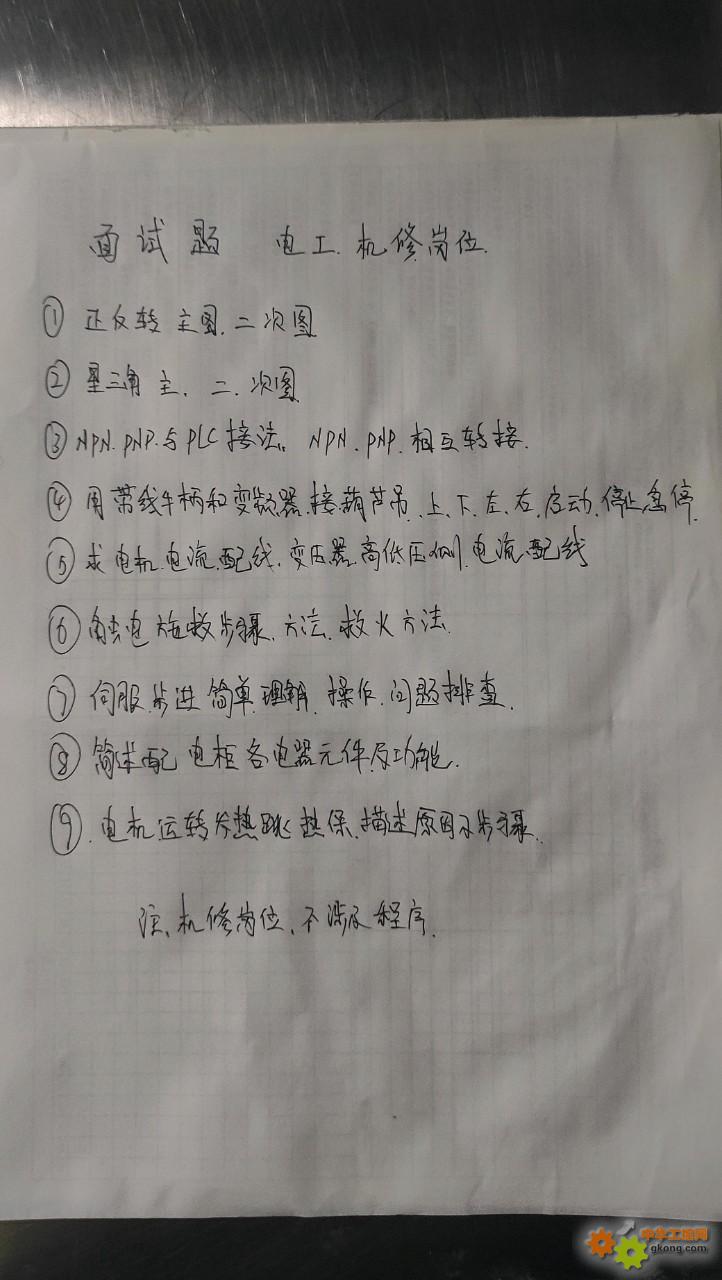 面试题 电工.机修岗位.
① 正反转 主图.二次图
② 星三角 主.二.次图
③ NPN.PNP.与PLC接法. NPN.PNP.相互转接.
④ 用带线手柄和变频器.接葫芦吊.上.下.左.右.启动.停止.急停.
⑤ 求电机.电流.配线.变压器.高低压侧.电流.配线
⑥ 触电施救步骤.方法.救火方法.
⑦ 伺服.步进简单理解.操作.问题排查.
⑧ 简述配电柜各电器元件及功能.
⑨.电机运转发热跳热保.描述原因及步骤.
注.机修岗位.不涉及程序.
中华工控网
gkong.com